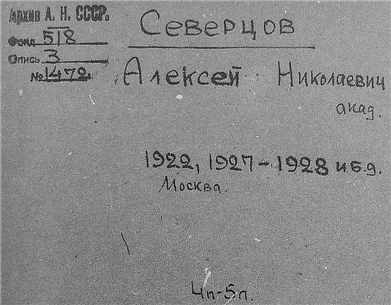 Архив А. Н. СССР.
Фонд 518
Опись 3
№ 1472
Северцов
Алексей Николаевич
акад.
1922, 1927-1928 и б.д.
Москва.
4п-5п.